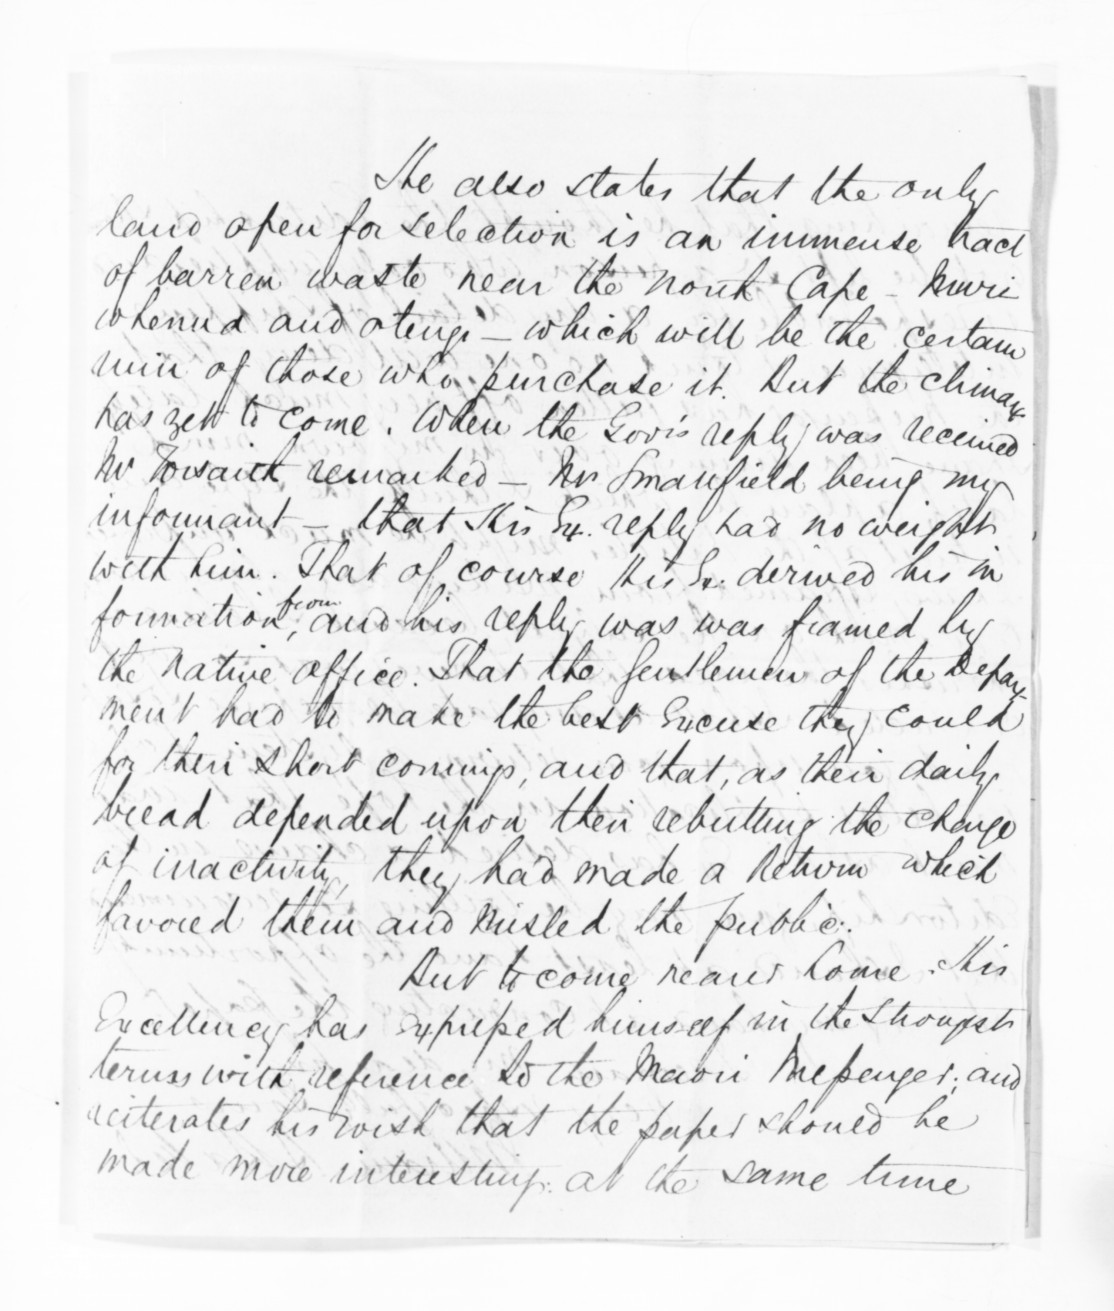 He also states that the only
land open for selection is an immense tract
of barren waste near the North Cape - Muri
whenua and otengi - which will be the certain
ruin of those who purchase it. But the climax
has yet to come. When the Govr's reply was received
Mr Forsaith remarked - Mr Smallfield being my
informant - that His Ex. reply had no weight
with him. That of course His Ex. derived his in
formation from, and his reply was was framed by
the Native office. That the gentlemen of the Depart
ment had to make the best Excuse they could
for their short comings, and that, as their daily
bread depended upon their rebutting the charge
of inactivity, they had made a Return which
favored them and misled the public.
But to come nearer home. His
Excellency has Expressed himself in the strongest
terms with reference to the Maori Messenger; and
reiterates his wish that the paper should be
made more interesting: at the same time